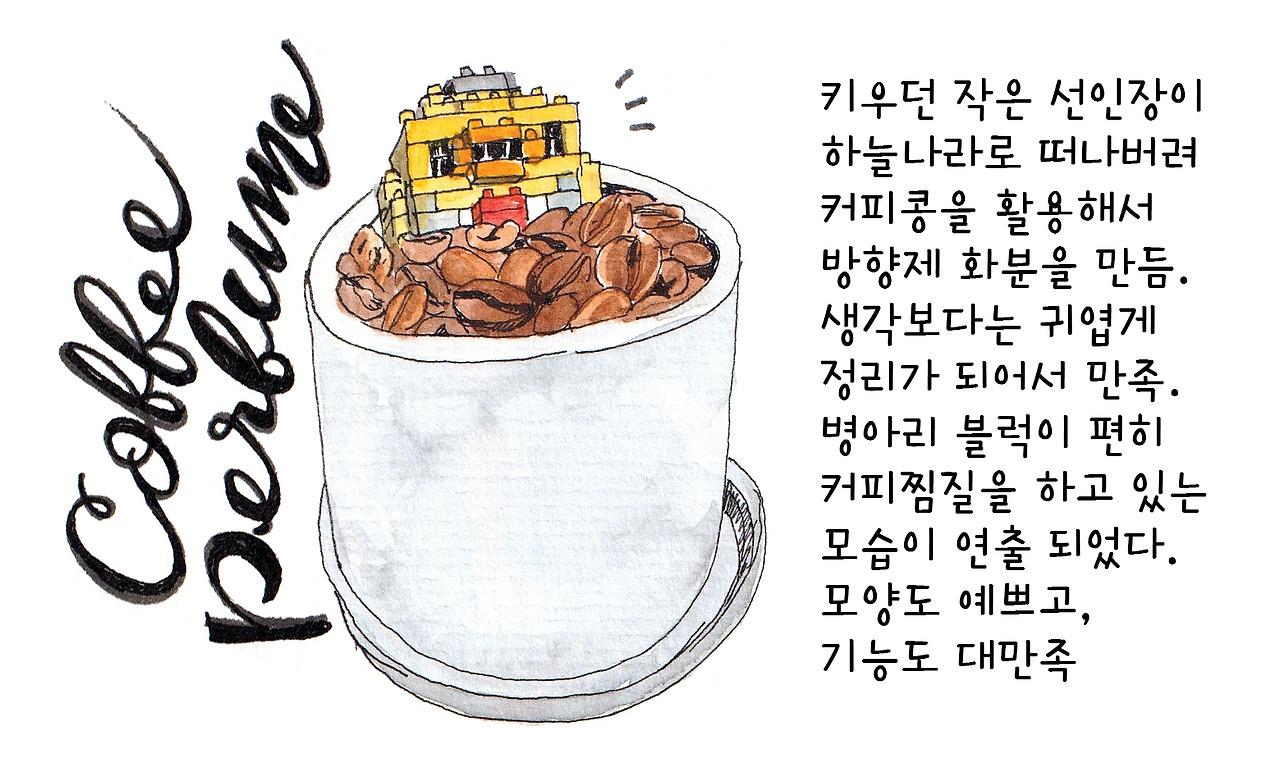 Coffee
perfume
키우던 작은 선인장이
하늘나라로 떠나버려
커피콩을 활용해서
방향제 화분을 만듬.
생각보다는 귀엽게
정리가 되어서 만족.
병아리 블럭이 편히
커피찜질을 하고 있는
모습이 연출 되었다.
모양도 예쁘고,
기능도 대만족